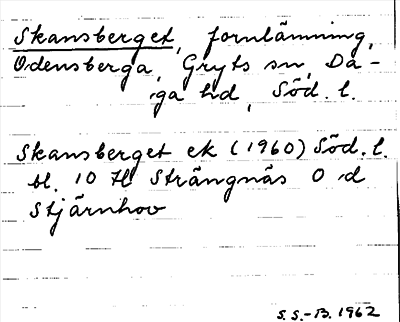 Skansberget, fornlämning,
Odensberga, Gryts sn, Da-
ga hd, Söd. l.
Skansberget ek (1960) Söd. l.
bl. 10 Hl Strängnäs O d
Stjärnhov
S.S.-B. 1962